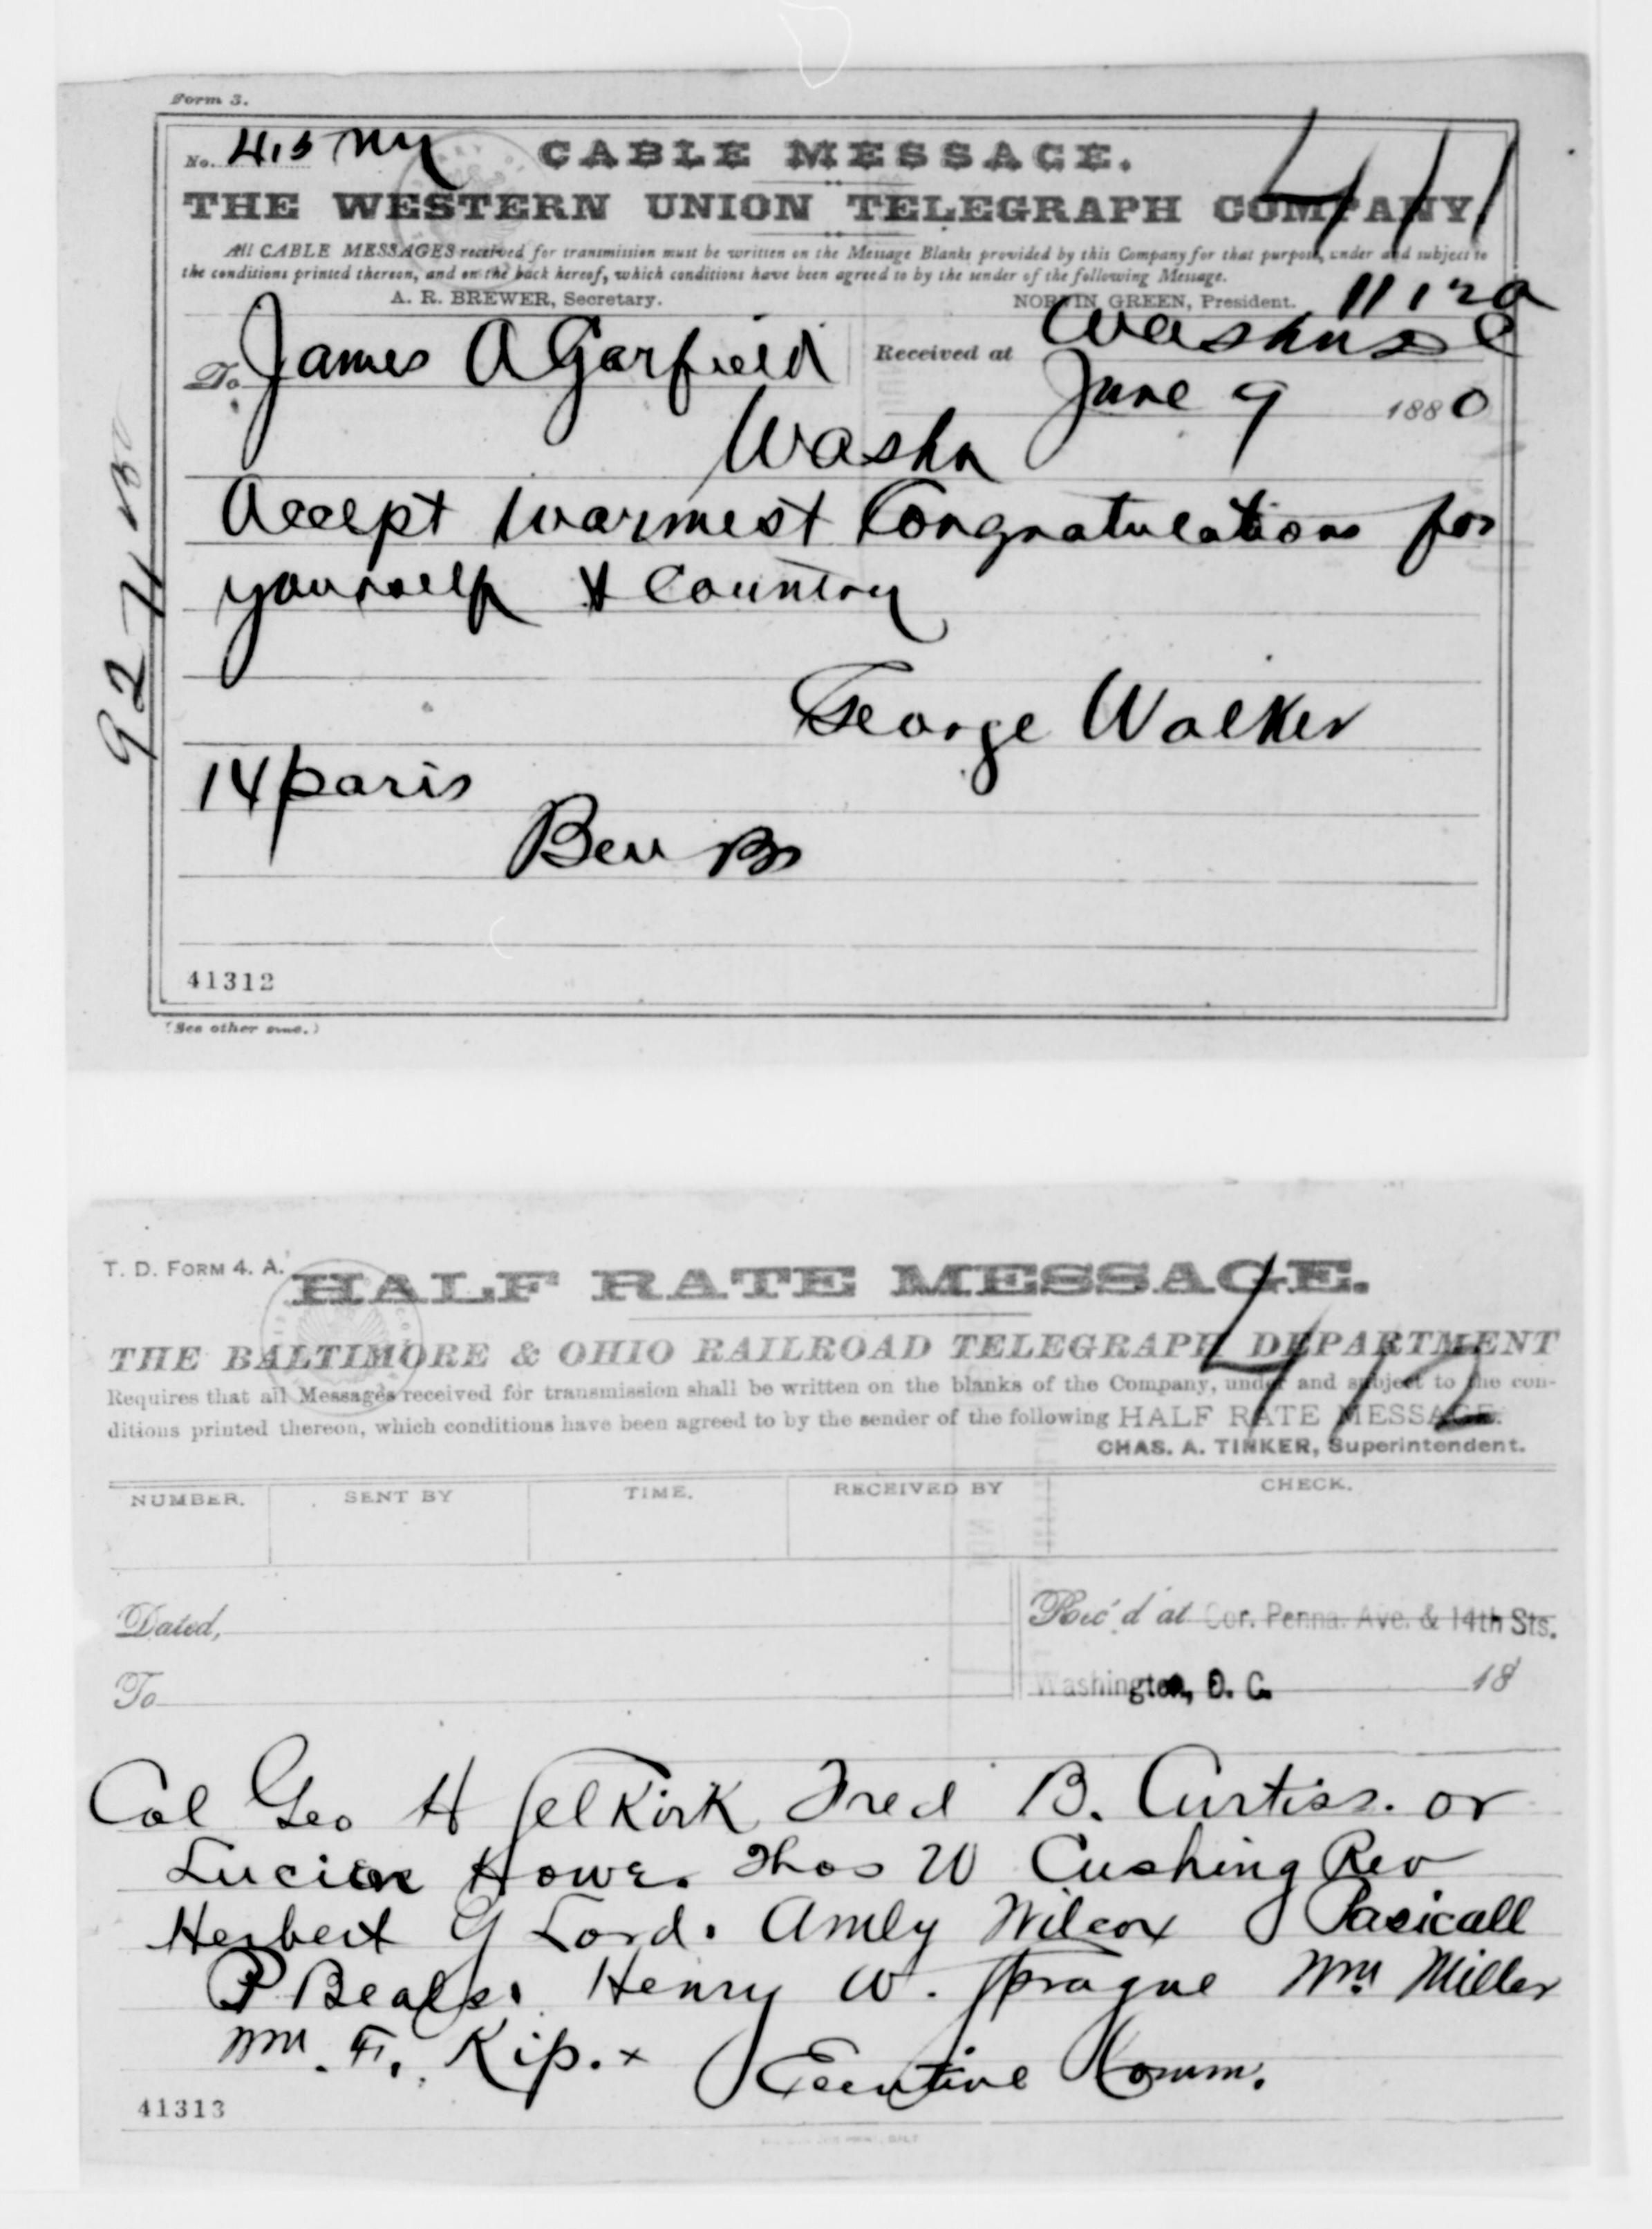 Form 3.
No. 415 Ny CABLE MESSAGE. 411
THE WESTERN UNION TELEGRAPH COMPANY
All CABLE MESSAGES received for transmission must be written on the Message Blanks provided by this Company for that purpose, under and subject to
the conditions printed thereon, and on the back hereof, which conditions have been agreed to by the sender of the following Message.
A. R. BREWER, Secretary. NORVIN GREEN, President. 1112a
To James A Garfield Received at Washn DC
June 9 1880
Washn
Accept warmest Congratulations for
yourself & Country
George Walker
14 paris
Ben
41312
(See other side.)
T. D. FORM 4. A.
HALF RATE MESSAGE. 412
THE BALTIMORE & OHIO RAILROAD TELEGRAPH DEPARTMENT
Requires that all Messages received for transmission shall be written on the blanks of the Company, under and subject to the con-
ditions printed thereon, which conditions have been agreed to by the sender of the following HALF RATE MESSAGE.
CHAS. A. TINKER, Superintendent.
NUMBER. SENT BY TIME. RECEIVED BY CHECK.
Dated, Rec'd at Cor. Penna. Ave. & 14th Sts.
To Washington, D. C. 18
Col Geo H Selkirk Fred B. Curtiss. or
Lucien Howe. Thos W Cushing Rev
Herbert G Lord. Amly Wilcox Pasicall
P Beals. Henry W. Sprague Wm Miller
Wm. F. Kip. x Executive Comm.
41313